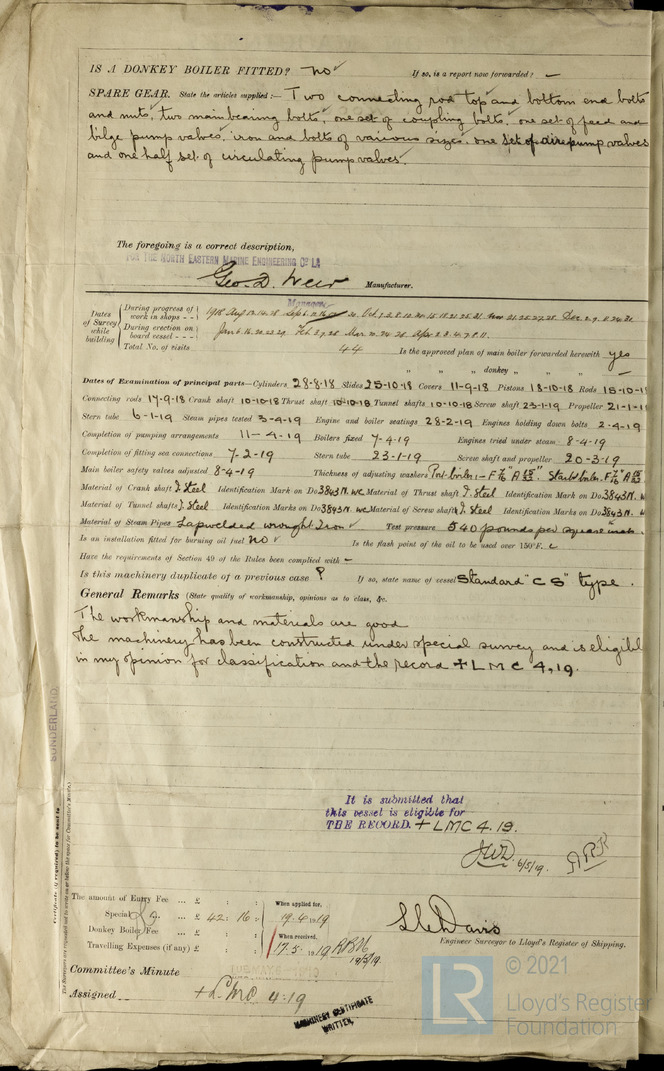 IS A DONKEY BOILER FITTED? No If so, is a report now forwarded? –
SPARE GEAR. State the articles supplied:— Two connecting rod top and bottom end bolts
and nuts, two main bearing bolts, one set of coupling bolts, one set of feed and
bilge pump valves, iron and bolts of various sizes. one set of air pump valves
and one half set of circulating pump valves.
The foregoing is a correct description,
FOR THE NORTH EASTERN MARINE ENGINEERING Co Ld
Geo. D. Weir Manufacturer.
Manager
Dates of Survey while building
During progress of work in shops - - 1918 Aug Sept Oct Nov 21.25.27.28 Dec 2.9.
During erection on board vessel - - - Jan 6.16.20.23.29 Feb 7.28 Mar 20.24.28 Apr 2.3.4.7.8.11.
Total No. of visits 44 Is the approved plan of main boiler forwarded herewith yes
" " " donkey " " " –
Dates of Examination of principal parts—Cylinders 28-8-18 Slides 25-10-18 Covers 11-9-18 Pistons 18-10-18 Rods 15-10-1
Connecting rods 17-9-18 Crank shaft 10-10-18 Thrust shaft 10-10-18 Tunnel shafts 10-10-18 Screw shaft 23-1-19 Propeller 21-1-1
Stern tube 6-1-19 Steam pipes tested 3-4-19 Engine and boiler seatings 28-2-19 Engines holding down bolts 2-4-19
Completion of pumping arrangements 11-4-19 Boilers fixed 7-4-19 Engines tried under steam 8-4-19
Completion of fitting sea connections 7-2-19 Stern tube 23-1-19 Screw shaft and propeller 20-3-19
Main boiler safety valves adjusted 8-4-19 Thickness of adjusting washers Port boiler:- F Starbd boiler. F
Material of Crank shaft I. Steel Identification Mark on Do 3843N. WC Material of Thrust shaft I. Steel Identification Mark on Do 3843N. W
Material of Tunnel shafts I. Steel Identification Marks on Do 3843N. WC Material of Screw shafts I. Steel Identification Marks on Do 3843N. W
Material of Steam Pipes Lapwelded wrought Iron Test pressure 540 pounds per square inch.
Is an installation fitted for burning oil fuel NO Is the flash point of the oil to be used over 150°F.
Have the requirements of Section 49 of the Rules been complied with –
Is this machinery duplicate of a previous case ? If so, state name of vessel Standard "C S" type.
General Remarks (State quality of workmanship, opinions as to class, &c.
The workmanship and materials are good
The machinery has been constructed under special survey and is eligibl
in my opinion for classification and the record + LMC 4,19.
SUNDERLAND
It is submitted that
this vessel is eligible for
THE RECORD. + LMC 4.19.
JWD 6/5/19. ARR
Certificate (if required) to be sent to
The Surveyors are requested not to write on or below the space for Committee's Minute.
The amount of Entry Fee ... £ : : When applied for,
Special ... £ 42 : 16 : 19.4.1919
Donkey Boiler Fee ... £ : : When received,
Travelling Expenses (if any) £ : : 17.5.1919 19/5/19.
S. Davis
Engineer Surveyor to Lloyd's Register of Shipping.
Committee's Minute TUE. MAY. 6 1919
Assigned + LMC 4:19
MACHINERY CERTIFICATE
WRITTEN.
LR © 2021
Lloyd's Register
Foundation